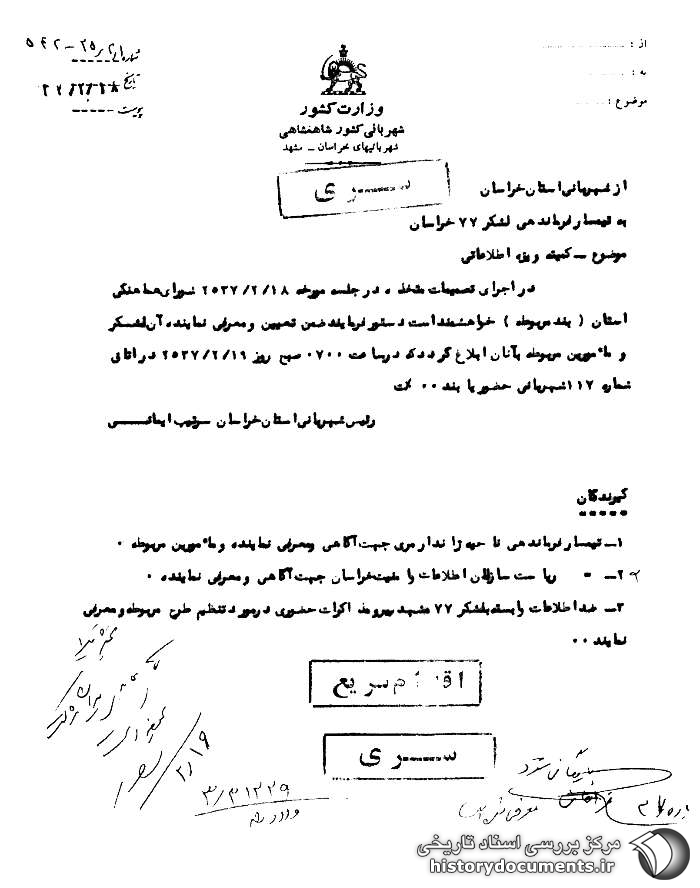 از :
به :
موضوع :
شماره
۵۴۲-۲۵
تاریخ
پیوست
وزارت کشور
شهربانی کشور شاهنشاهی
شهربانیهای خراسان ــ مشهد
ســری
از شهربانی استان خراسان
به تیمسار فرماندهی لشکر ۷۷ خراسان
موضوع ــ کمیته ویژه اطلاعاتی
در اجرای تصمیمات متخذه در جلسه مورخه ۲۵۳۷/۲/۱۸ شورای هماهنگی
استان ( بند مربوطه ) خواهشمند است دستور فرمایند ضمن تعیین و معرفی نماینده آن لشکر
و مأمورین مربوطه بآنان ابلاغ گردد که در ساعت ۰۷۰۰ صبح روز ۲۵۳۷/۲/۱۹ در اتاق
شماره ۱۱۷ شهربانی حضور یابند ۰۰
رئیس شهربانی استان خراسان سرتیپ
گیرندگان
*****
۱ــ تیمسار فرماندهی ناحیه ژاندارمری جهت آگاهی و معرفی نماینده و مأمورین مربوطه ۰
۲ــ " ریاست سازمان اطلاعات و امنیت خراسان جهت آگاهی و معرفی نماینده ۰
۳ــ ضد اطلاعات وابسته بلشکر ۷۷ مشهد پیرو مذاکرات حضوری در مورد تنظیم طرح مربوطه و معرفی
نماینده ۰۰
اقدام سریع
ســری
۲/۱۹
بایگانی شود
۳/۳۱۲۲۹
مرکز بررسی اسناد تاریخی
historydocuments.ir